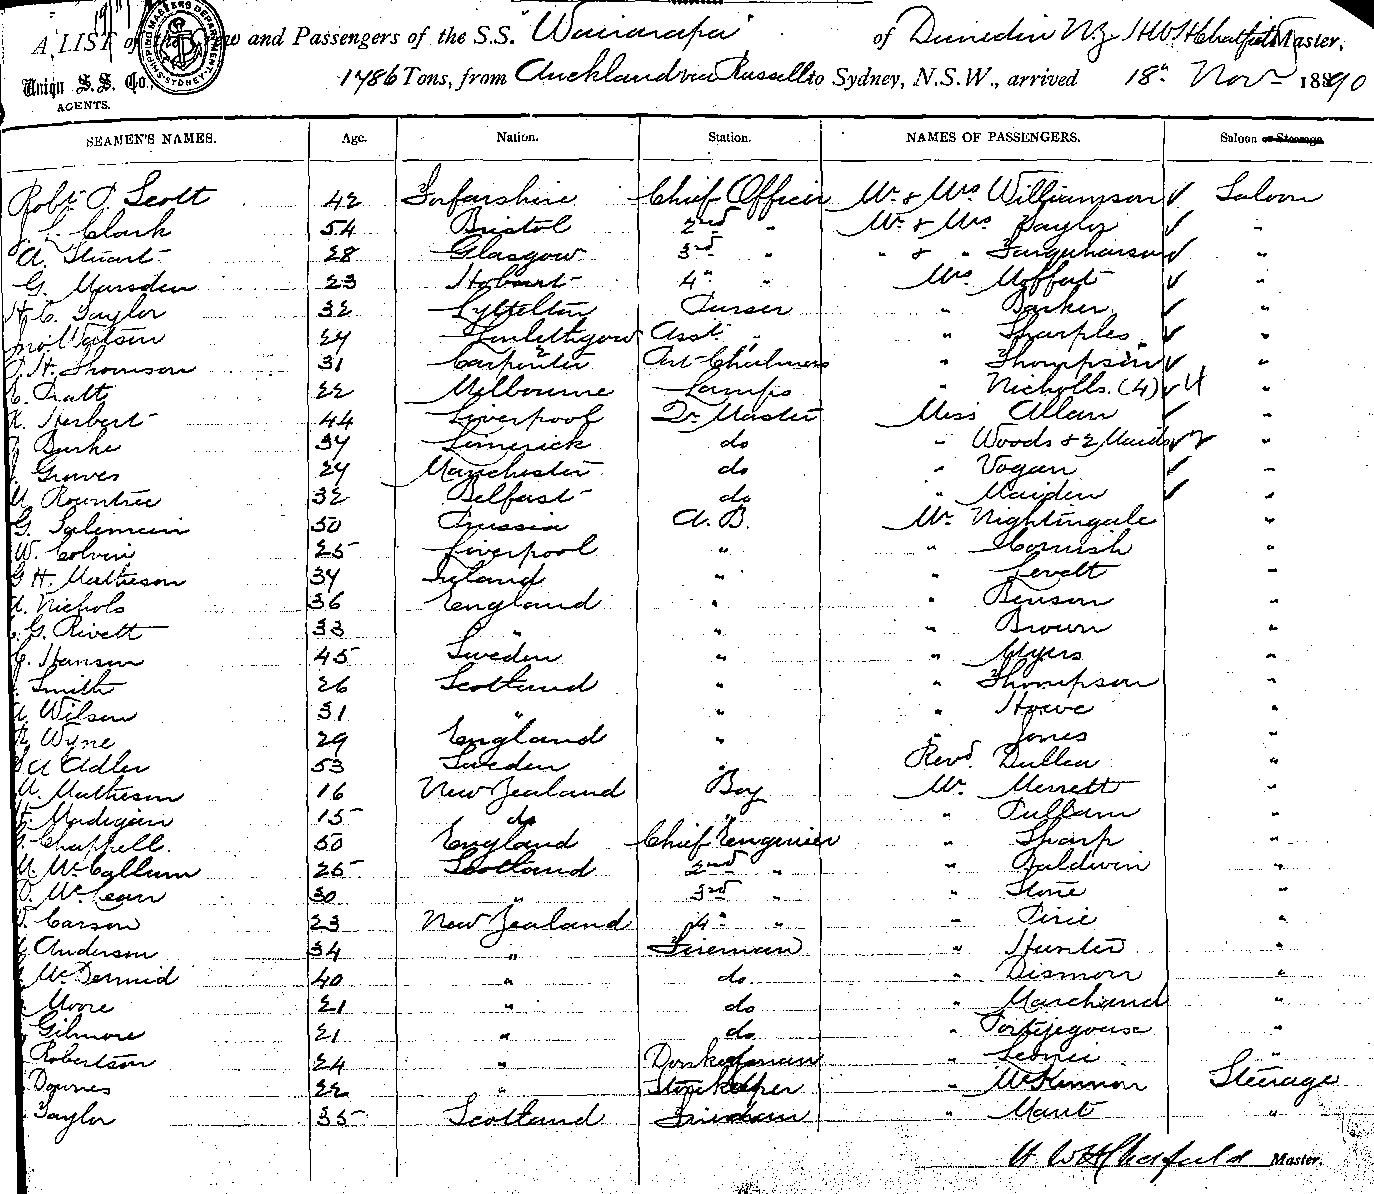 A LIST of the Crew and Passengers of the S.S. Wairarapa of Dunedin NZ H W H Chatfield Master,
Union S.S. Co., 1786 Tons, from Auckland via Russell to Sydney, N.S.W., arrived 18th Novr 1890
AGENTS.
SEAMEN'S NAMES. Age. Nation. Station. NAMES OF PASSENGERS. Saloon or Steerage
Robt. P. Scott 42 Forfarshire Chief Officer Mr. & Mrs Williamson ✓ Saloon
Clark 54 Bristol 2nd " Mr & Mrs Taylor ✓ "
A. Stuart 28 Glasgow 3rd " " & " Farquharson ✓ "
G. Marsden 23 Hobart 4th " Mrs Moffatt ✓ "
H. C. Taylor 32 Lyttelton Purser " Barker ✓ "
Jno Watson 24 Linlithgow Asst. " " Sharples ✓ "
H. Thomson 31 Carpenter Port Chalmers " Thompson ✓ "
Pratt 22 Melbourne Lamps " Nicholls (4) ✓ 4 "
Herbert 44 Liverpool Qr. Master Miss Allan ✓ "
Burke 34 Limerick do " Woods & 2 Maids ✓ "
Graves 24 Manchester do " Vogan ✓ "
Rountree 32 Belfast do " Maiden ✓ "
G. 50 Prussia A.B. Mr. Nightingale "
W. Colvin 25 Liverpool " " Cornish "
G H. Matheson 34 Ireland " " Levett "
Nichols 36 England " " Benson "
G. Rivett 33 " " " Brown "
C. Hansen 45 Sweden " " Myers "
Smith 26 Scotland " " Thompson "
Wilson 31 " " " Howe "
Wyne 29 England " " Jones "
A Adler 53 Sweden " Revd. Dullea "
Matheson 16 New Zealand Boy Mr. Merrett "
Madigan 15 do " " Pullam "
Chappell. 50 England Chief Enginier " Sharp "
McCallum 25 Scotland 2nd " " Baldwin "
McLean 30 " 3rd " " Stone "
Carson 23 New Zealand 4th " " Pirie "
Anderson 34 " Fireman " Hunter "
McDermid 40 " do. " Dismorr "
Moore 21 " do " Marchand "
Gilmore 21 " do "
Robertson 24 " Donkeyman " "
Downes 22 " Storekeeper " McKinnon Steerage
Taylor 35 Scotland Fireman " Mant "
H W H Chatfield Master.